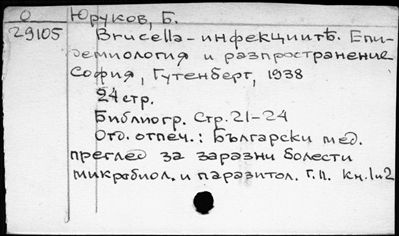 О Юруков, Б.
29105 Brucella-инфекциитѣ. Епи-
демиология и разпространение
София, Гутенберг, 1938
24 стр.
Библиогр. Стр. 21-24
Отд. отпеч.: Български мед.
преглед за заразни болести
микробиол. и паразитол. Г.П. кн. 1 и 2